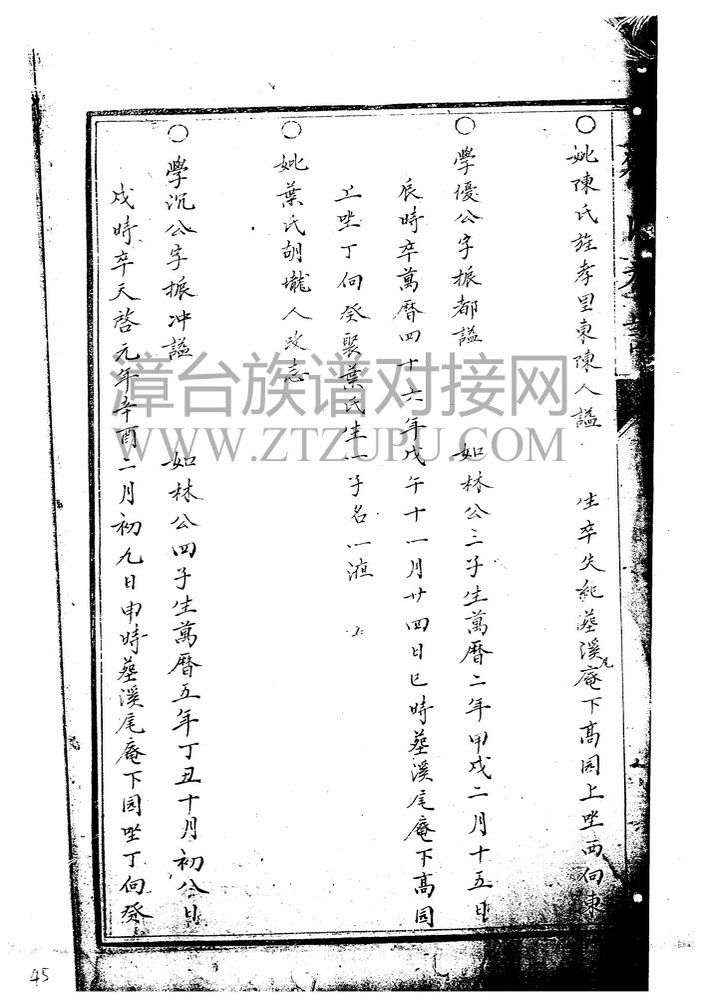 ○妣陳氏旌孝里東陳人謚 生卒失紀葬溪尾庵下髙园上坐西向東
○學優公字振都謚 如林公三子生萬曆二年甲戌二月十五日
辰時卒萬曆四十六年戊午十一月廿四日巳時葬溪尾庵下髙园
上坐丁向癸娶葉氏生一子名一
○妣葉氏胡壠人改志
○學沉公字振冲謚 如林公四子生萬曆五年丁丑十月初八日
戌時卒天啓元年辛酉二月初九日申時葬溪尾庵下园坐丁向癸
漳台族谱对接网
WWW.ZTZUPU.COM
45